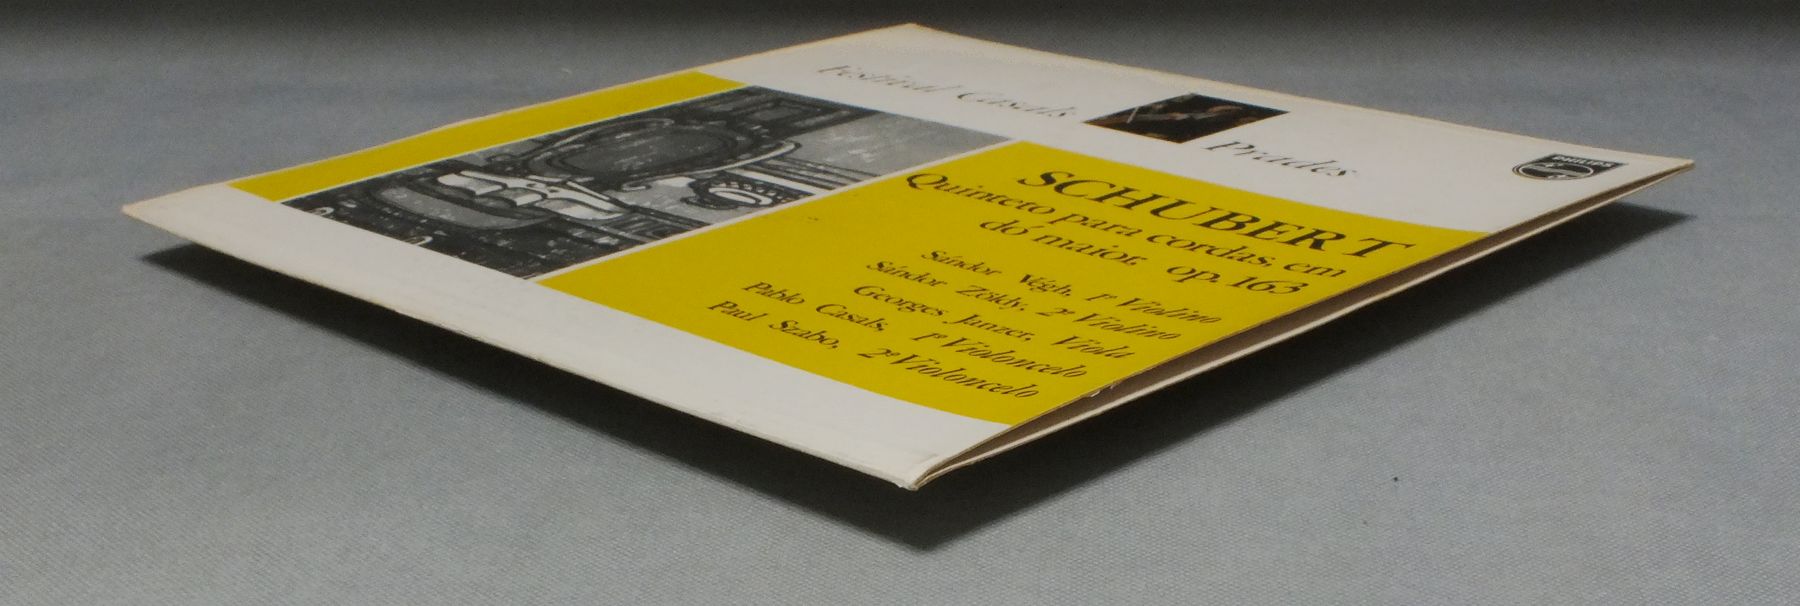 Festival Casals Prades
PHILIPS
SCHUBERT
Quinteto para cordas, em
dó maior, op. 163
Sándor Végh, 1º Violino
Sándor Zöldy, 2º Violino
Georges Janzer, Viola
Pablo Casals, 1º Violoncelo
Paul Szabo, 2º Violoncelo